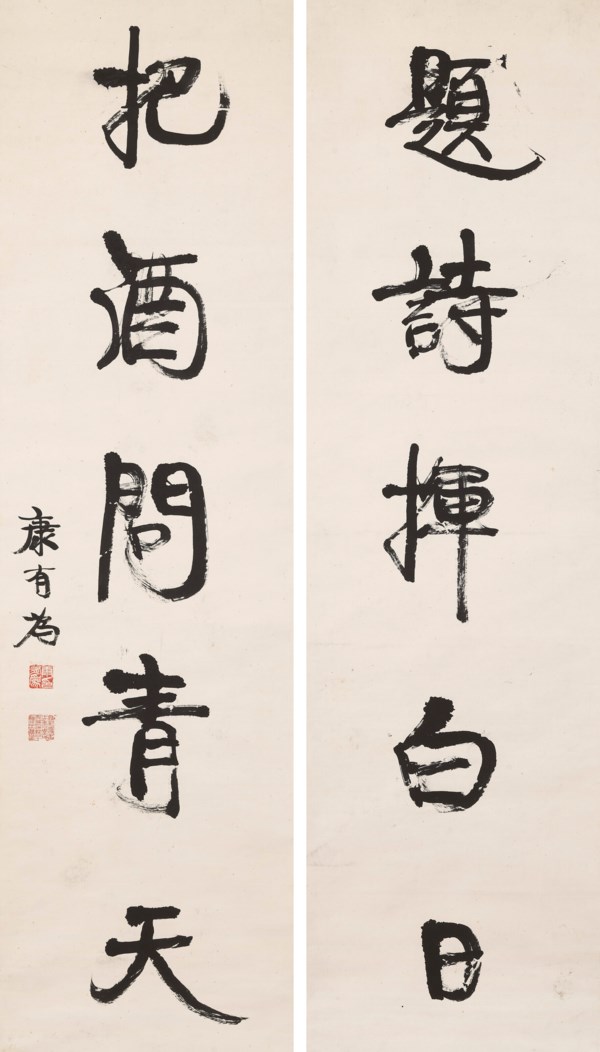 題詩揮白日
把酒問青天
康有為